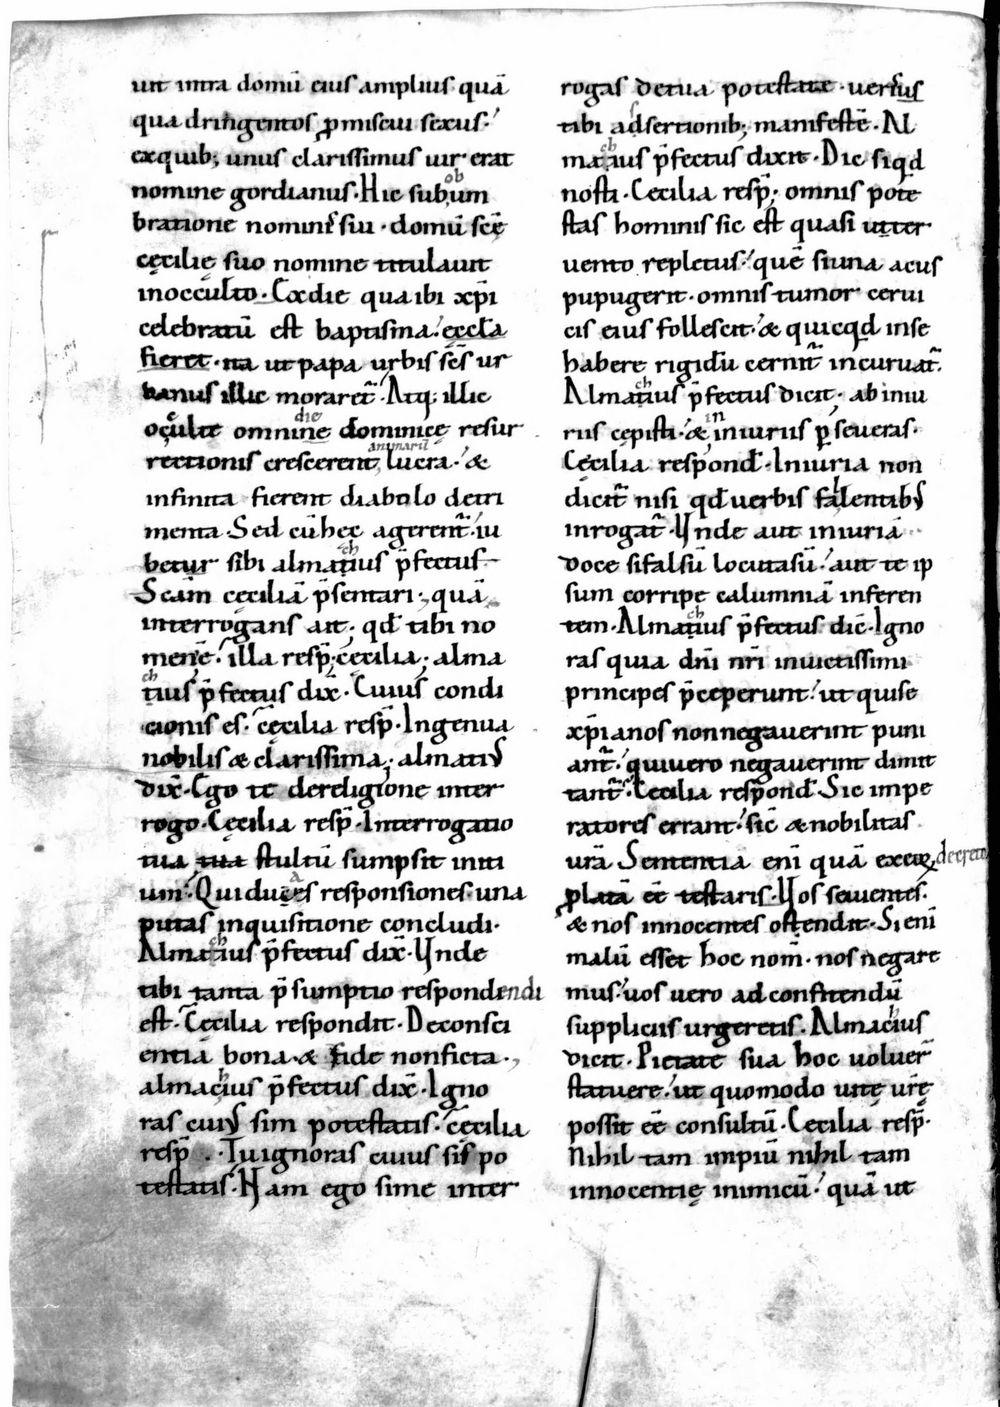 unt intra domū eius amplius quā
quadringentos ꝓmiscui sexus.
exquib; unus clarissimus uir erat
nomine gordianus. Hic subum
ob
bratione nominis sui. domū scę̄
cęcilię suo nomine titulauit
inocculto. Exdie qua ibi xp̄i
celebratū est baptisma. eccl̄a
fieret. ita ut papa urbis sc̄s ur
banus illic moraret̃. Atq; illic
oculte omnine dominicę resur
die
rectionis crescerent lucra. &
infinita fierent diabolo detri
menta. Sed cū hęc agerent̃. iu
betur sibi almatius p̄fectus
ch
Scām ceciliā p̄sentari. quā
interrogans ait. qd̄ tibi no
men ē. illa resp̄. cęcilia. almа
tius p̄fectus dix̄. Cuius condi
ch
cionis es. cęcilia resp̄. Ingenua
nobilis & clarissima. almatiꝰ
dix̄. Ego te dereligione inter
rogo. Cęcilia resp̄. Interrogatio
tua tua stultū sumpsit initi
um. Qui duęs responsiones una
a
putas inquisitione concludi.
Almatius p̄fectus dix̄. Unde
ch
tibi tanta p̄sumptio respondendi
est. Cęcilia respondit. De consci
entia bona. & fide non ficta.
almacius p̄fectus dix̄. Igno
h
ras cuiꝰ sim potestatis. cęcilia
resp̄. Tu ignoras cuius sis po
testatis. Nam ego sime inter
rogas detua potestate. uerius
tibi adsertionib; manifestē. Al
matius p̄fectus dixit. Dic siqd
ch
nosti. Cecilia resp̄. omnis pote
stas hominis sic est quasi utter
uento repletus. quē siuna acus
pupugerit. omnis tumor cerui
cis eius follescit. & quicqd inse
habere rigidū cernit̃ incuruat̃.
Almatius p̄fectus dicit. ab iniu
ch
riis cepisti. & iniuriis ꝑseueras.
in
Cęcilia respond̄. Iniuria non
dicit̃ nisi qd̄ uerbis fallentibꝰ
inrogat̃. Unde aut iniuriā
doce sifalsū locutasū. aut te ip
sum corripe calumniā inferen
tem. Almatius p̄fectus dic̄. Igno
ch
ras quia dn̄i nr̄i inuictissimi
principes p̄ceperunt. ut quise
xp̄ianos nonnegauerint puni
ant̃. quiuero negauerint dimit
tant̃. Cecilia respond̄. Sic impe
ratores errant. sic & nobilitas
ur̄a. Sententia enī quā
decreto
platā eē testaris. Uos seuientes.
& nos innocentes ostendit. Si enī
malū esset hoc nom̄. nos negare
mus. uos uero ad confitendū
suppliciis urgeretis. Almacius
h
dicit. Pietate sua hoc uoluer̄
statuere. ut quomodo uitę ur̄ę
possit eē consultū. Cecilia resp̄.
Nihil tam impiū nihil tam
innocentię inimicū. quā ut